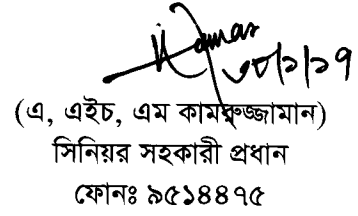 ৩০/১/১৭
(এ, এইচ, এম কামরুজ্জামান)
সিনিয়র সহকারী প্রধান
ফোনঃ ৯৫১৪৪৭৫